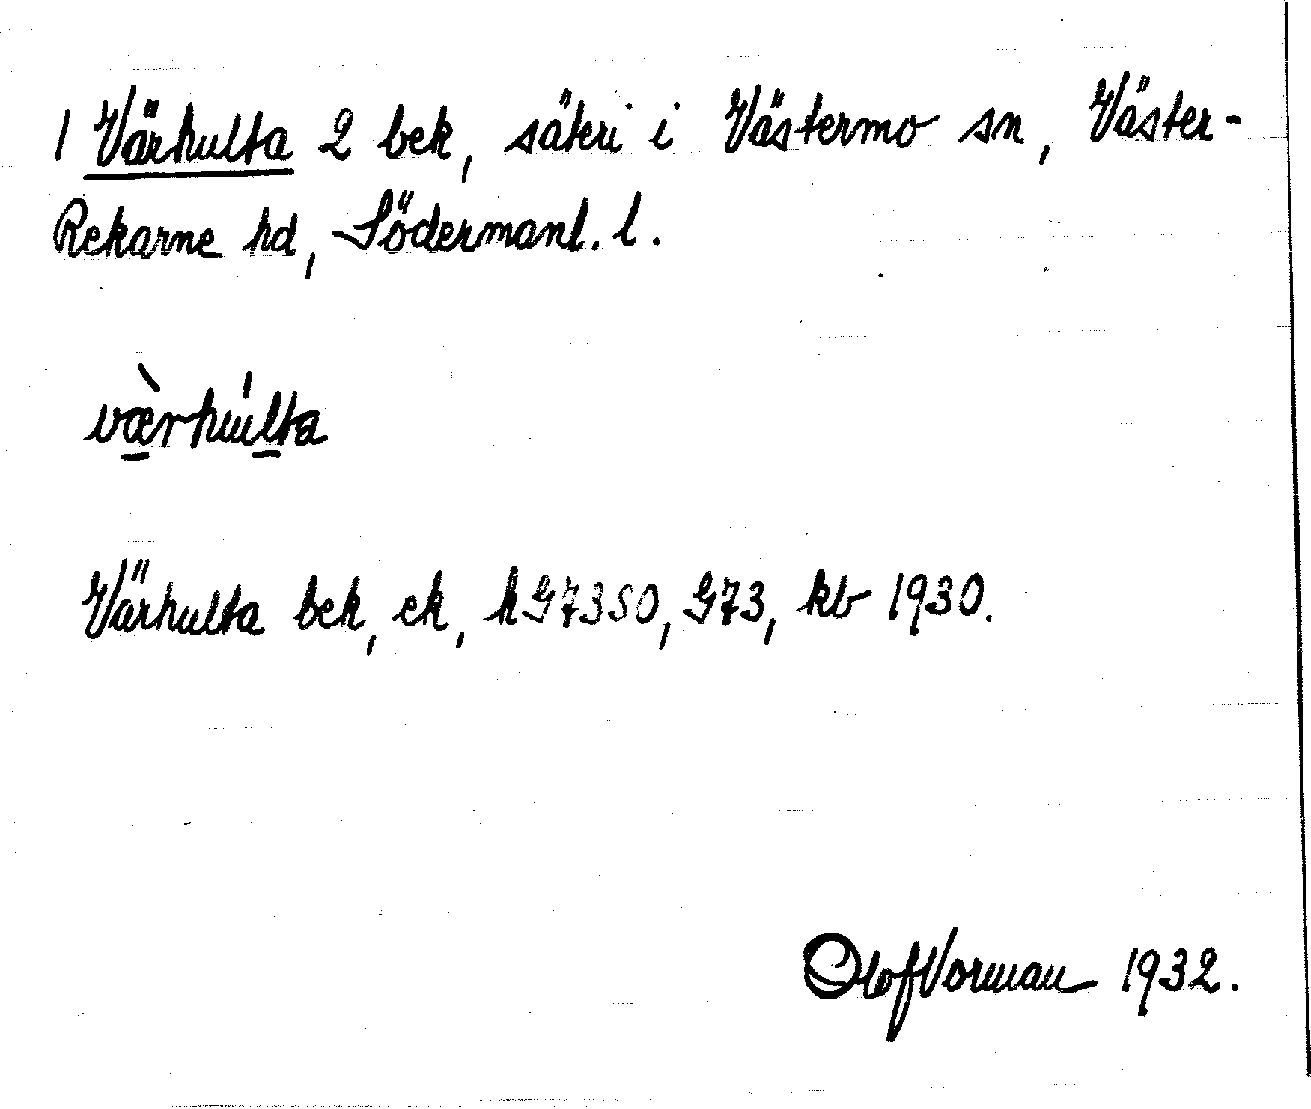 1 Värhulta 2 bek, säteri i Västermo sn, Väster-
Rekarne hd, Södermanl. l.
værhulta
Värhulta bek, ek, kG73SO, G73, kb 1930.
Olof Vorman 1932.